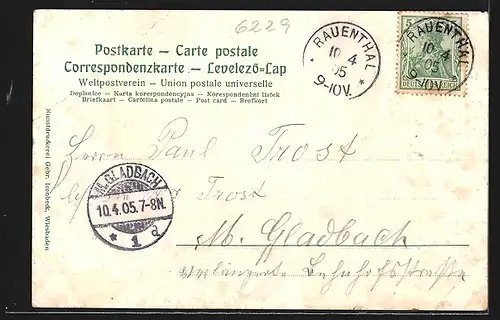 6229
Postkarte – Carte postale
Correspondenzkarte – Levelező-Lap
Weltpostverein – Union postale universelle
Dopisnice – Karta korespondencyjna – Korespondenčni listek
Briefkaart – Cartolina postale – Post card – Brefkort
RAUENTHAL
10 4
05
9-10V.
*
RAUENTHAL
10 4
05
9-10V.
5
Herrn Paul Trost
Trost
M. Gladbach
Verlängerte Bahnhofstraße
M. GLADBACH
10.4.05.7-8N.
* 1 d
Kunstdruckerei Gebr. Isenbeck, Wiesbaden.